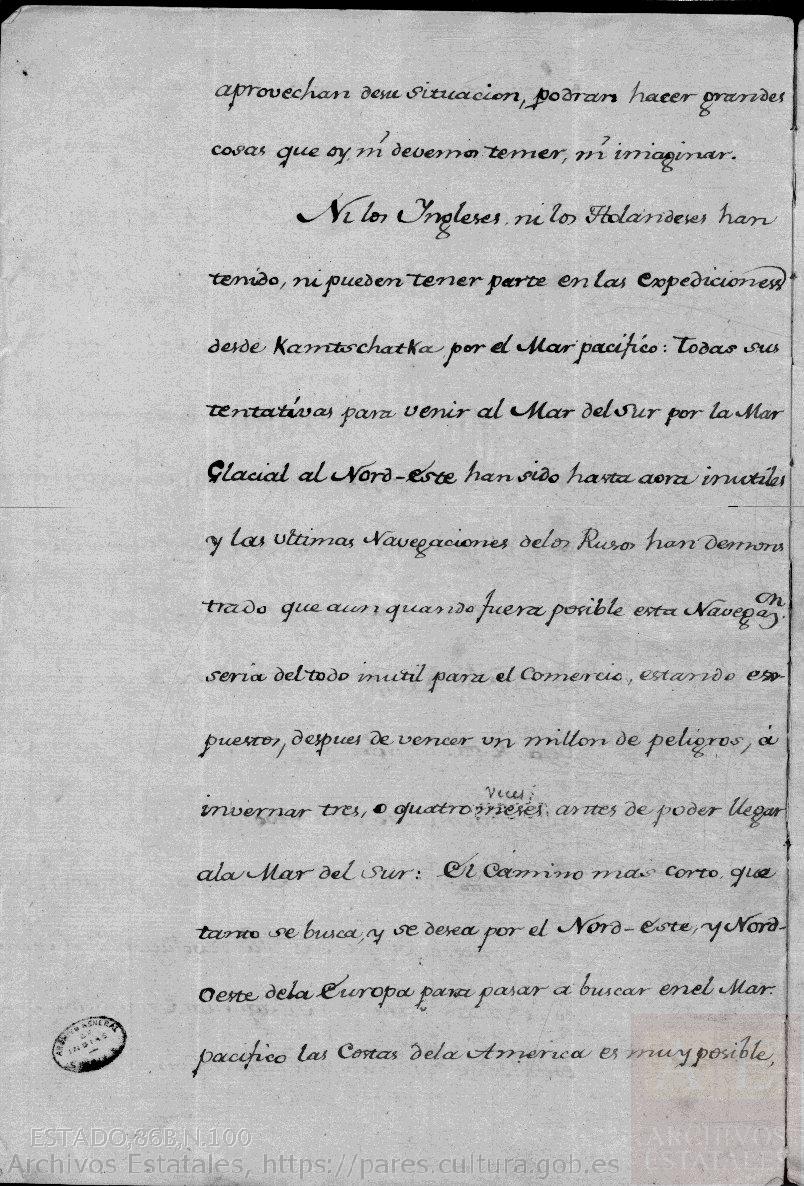 aprovechan desu situacion, podran hacer grandes
cosas que oy, ni devemos temer, ni imaginar.
Ni los Yngleses, ni los Holandeses han
tenido, ni pueden tener parte en las expediciones
desde Kamtschatka por el Mar pacifico: Todas sus
tentativas para venir al Mar del Sur por la Mar
Glacial al Nord-este han sido hasta aora inutiles
y las ultimas Navegaciones delos Rusos han demons
trado que aun quando fuera posible esta Navegaon.
seria del todo inutil para el Comercio, estando es
puestos, despues de vencer un millon de peligros, á
veces
invernar tres, o quatro meses, antes de poder llegar
ala Mar del Sur: El Camino mas corto, que
tanto se busca, y se desea por el Nord-este, y Nord-
Oeste dela Europa para pasar a buscar enel Mar.
pacifico las Costas dela America es muy posible,
ARCHIVO GENERAL
DE
INDIAS
ESTADO,86B,N.100
Archivos Estatales, https://pares.cultura.gob.es
ARCHIVOS
ESTATALES